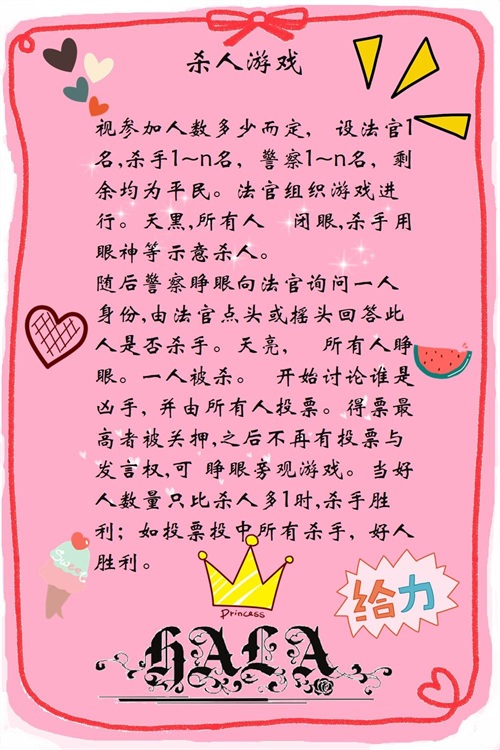 杀人游戏
视参加人数多少而定， 设法官1
名,杀手1~n名，警察1~n名，剩
余均为平民。法官组织游戏进
行。天黑,所有人 闭眼,杀手用
眼神等示意杀人。
随后警察睁眼向法官询问一人
身份,由法官点头或摇头回答此
人是否杀手。天亮， 所有人睁
眼。一人被杀。 开始讨论谁是
凶手，并由所有人投票。得票最
高者被关押,之后不再有投票与
发言权,可 睁眼旁观游戏。当好
人数量只比杀人多1时,杀手胜
利；如投票投中所有杀手，好人
胜利。
Sweet
Princess
给力
HALA